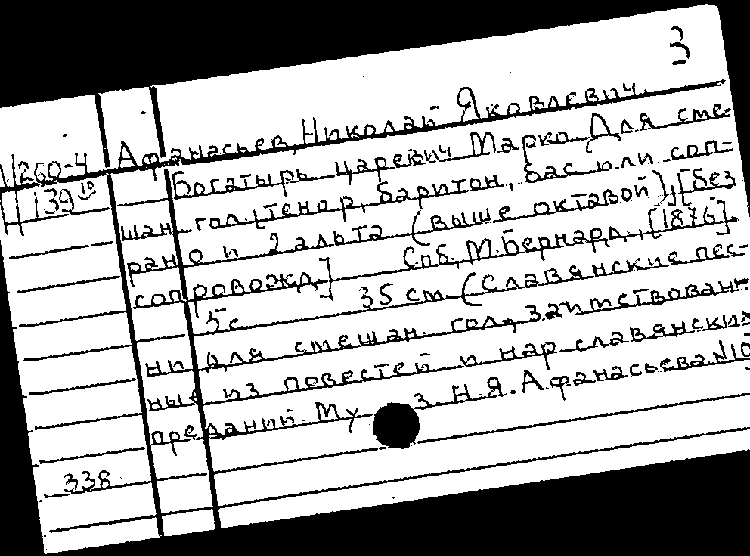 3
Афанасьев, Николай Яковлевич.
260-4
139 19
Богатырь царевич Марко. Для сме-
шан. гол. [тенор, баритон, бас или соп-
рано и 2 альта (выше октавой), [без
сопровожд.] Спб, М. Бернард, [1876].
5 с 35 см (Славянские пес-
ни для смешан. гол., заимствован-
ные из повестей и нар. славянских
преданий. Му з. Н.Я. Афанасьева. N10
338